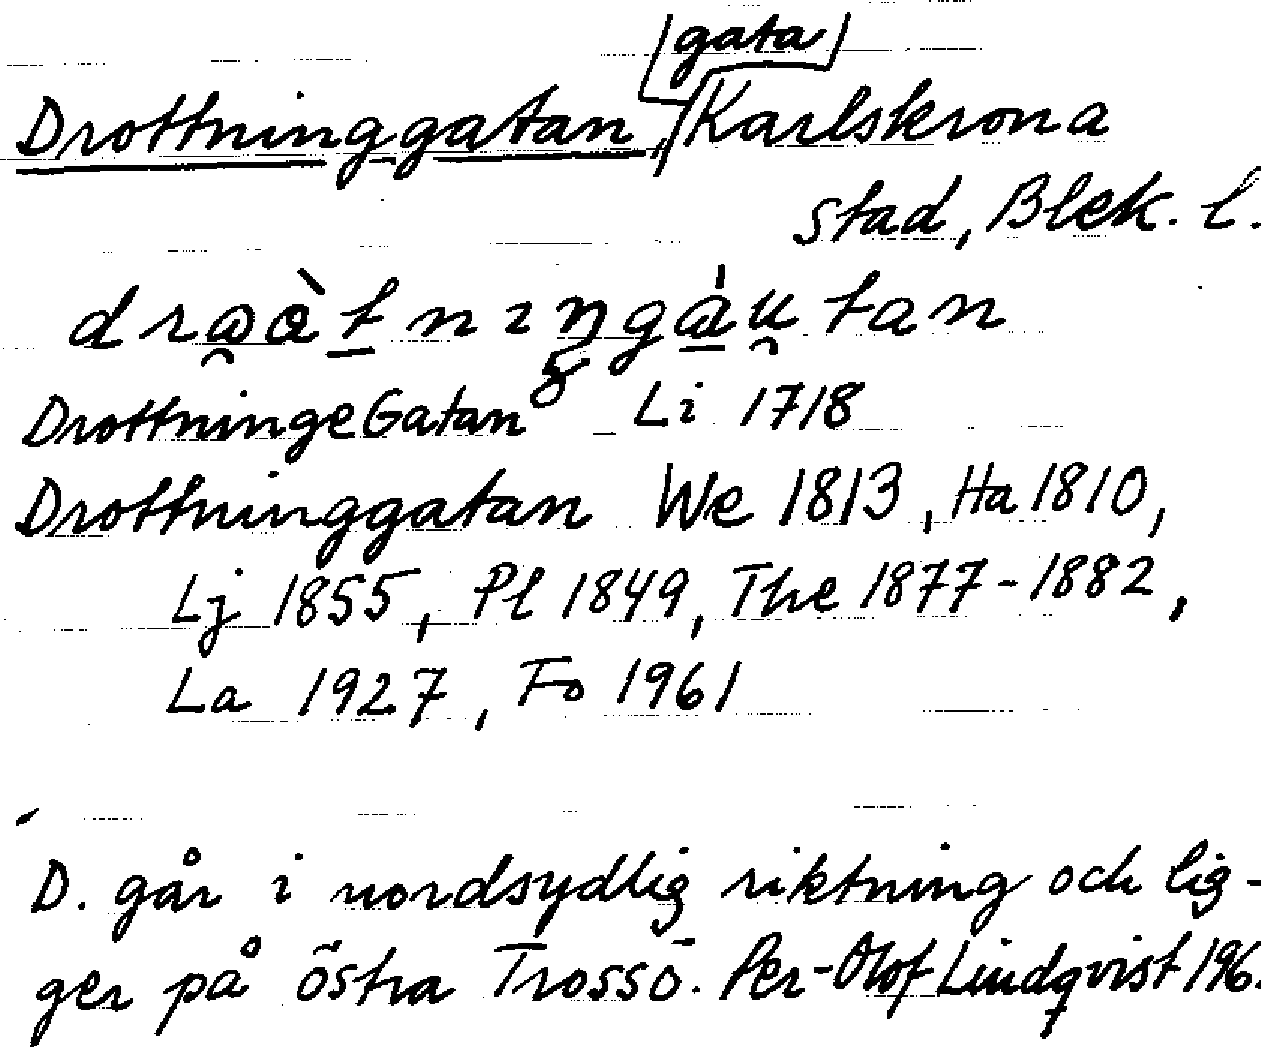 gata
Drottninggatan, Karlskrona
stad, Blek. l.
DrottningeGatan Li 1718
Drottninggatan We 1813, Ha 1810,
Lj 1855, Pl 1849, The 1877-1882,
La 1927, Fo 1961
D. går i nordsydlig riktning och lig-
ger på östra Trossö. Per-Olof Lindqvist 196